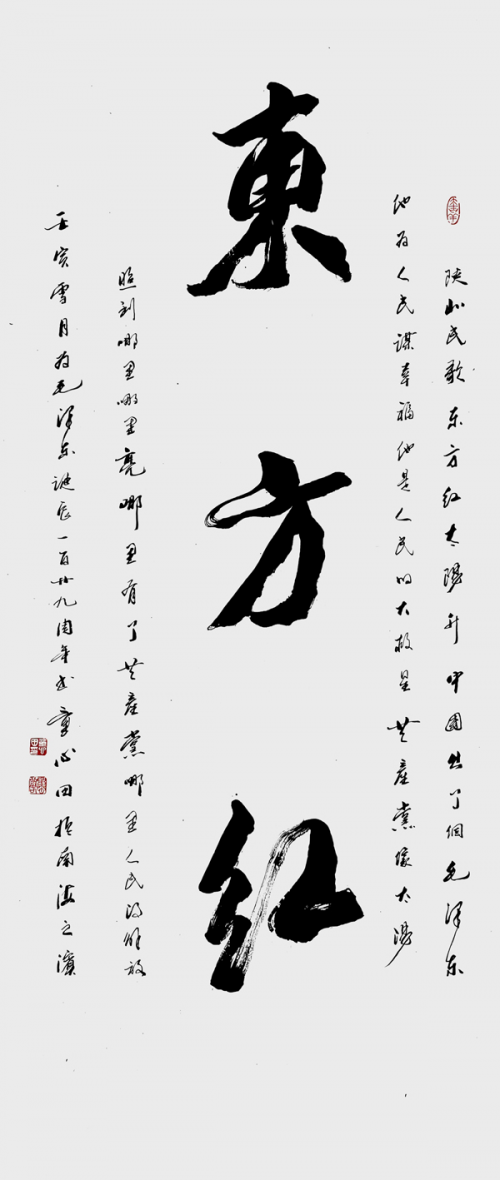 東方红
陕北民歌 东方红太陽升 中國出了個毛泽东
他为人民谋幸福他是人民的大救星共產黨像太陽
照到哪里哪里亮哪里有了共產黨哪里人民得解放
壬寅雪月为毛泽东诞辰一百廿九周年书童心田於南海之濱